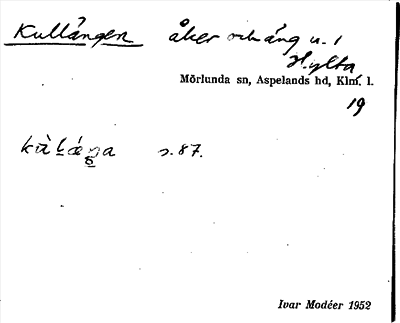 Kullängen åker och äng u. 1
Hylta
Mörlunda sn, Aspelands hd, Klm. l.
19
s. 87.
Ivar Modéer 1952